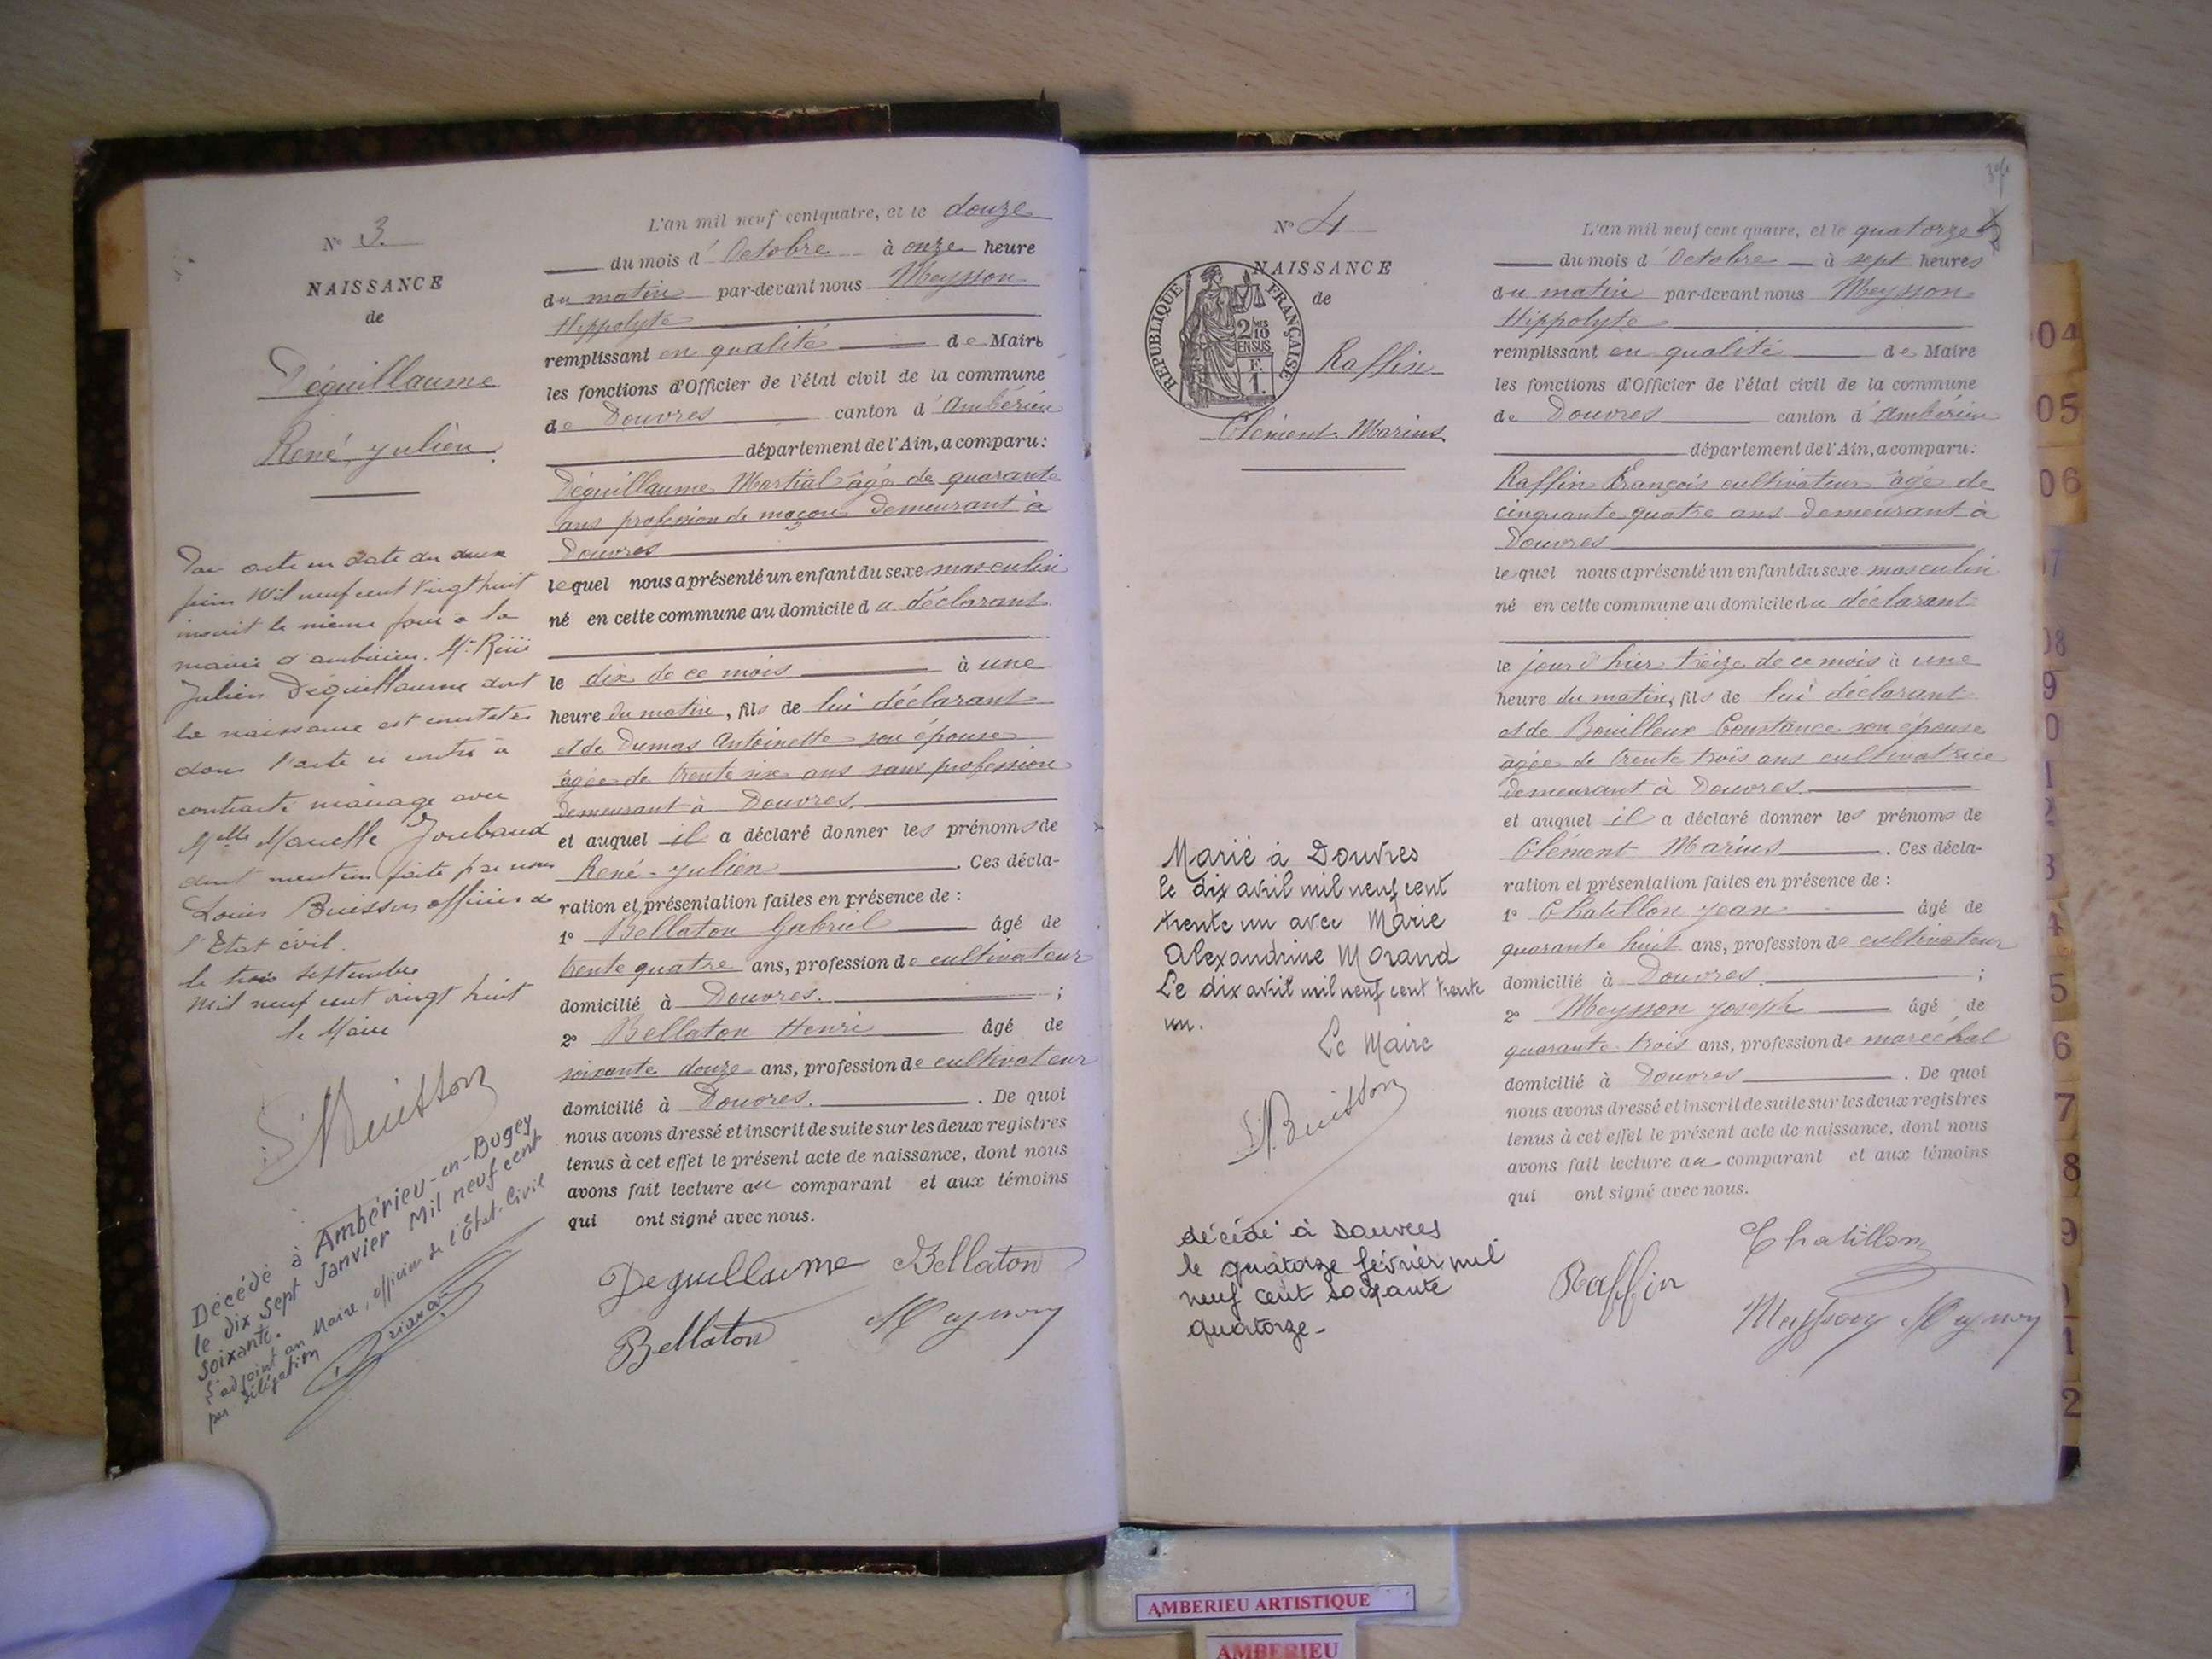 N° 3.
NAISSANCE
de
Déguillaume
René, Julien.
Par acte en date du deux
juin Mil neuf cent vingt huit
inscrit le même jour à la
mairie d'ambérieu. Mr René
Julien Déguillaume dont
la naissance est constatée
dans l'acte ci contre a
contracté mariage avec
Melle Marcelle Joubaud
dont mention faite par nous
Louis Buisson officier de
l'Etat civil.
le trois septembre
Mil neuf cent vingt huit
le Maire
L. Buisson
Décédé à Ambérieu-en-Bugey
le dix Sept Janvier Mil neuf cent
Soixante.
L'adjoint au Maire, officier de l'Etat-Civil
par délégation
L'an mil neuf cent quatre, et le douze
du mois d'Octobre à onze heure
du matin par-devant nous Meysson
Hippolyte
remplissant en qualité de Maire
les fonctions d'Officier de l'état civil de la commune
de Douvres canton d'Ambérieu
département de l'Ain, a comparu:
Déguillaume Martial âgé de quarante
ans profession de maçon demeurant à
Douvres
lequel nous a présenté un enfant du sexe masculin
né en cette commune au domicile du déclarant
le dix de ce mois à une
heure du matin, fils de lui déclarant
et de Dumas Antoinette son épouse
âgée de trente six ans sans profession
demeurant à Douvres
et auquel il a déclaré donner les prénoms de
René-Julien. Ces décla-
ration et présentation faites en présence de :
1° Bellaton Gabriel âgé de
trente quatre ans, profession de cultivateur
domicilié à Douvres. ;
2° Bellaton Henri âgé de
soixante douze ans, profession de cultivateur
domicilié à Douvres. . De quoi
nous avons dressé et inscrit de suite sur les deux registres
tenus à cet effet le présent acte de naissance, dont nous
avons fait lecture au comparant et aux témoins
qui ont signé avec nous.
Deguillaume Bellaton
Bellaton Meysson
N° 4
NAISSANCE
de
RÉPUBLIQUE FRANÇAISE
2 MES
10
EN SUS
F.
1
Raffin
Clément-Marius
Marié à Douvres
le dix avril mil neuf cent
trente un avec Marie
Alexandrine Morand
Le dix avril mil neuf cent trente
un.
Le Maire
L. Buisson
décédé à Douvres
le quatorze février mil
neuf cent soixante
quatorze-
L'an mil neuf cent quatre, et le quatorze
du mois d'Octobre à sept heures
du matin par-devant nous Meysson
Hippolyte
remplissant en qualité de Maire
les fonctions d'Officier de l'état civil de la commune
de Douvres canton d'Ambérieu
département de l'Ain, a comparu:
Raffin François cultivateur âgé de
cinquante quatre ans demeurant à
Douvres
lequel nous a présenté un enfant du sexe masculin
né en cette commune au domicile du déclarant
le jour d'hier treize de ce mois à une
heure du matin, fils de lui déclarant
et de Bouilleux Constance son épouse
âgée de trente trois ans cultivatrice
demeurant à Douvres
et auquel il a déclaré donner les prénoms de
Clément Marius. Ces décla-
ration et présentation faites en présence de :
1° Chatillon Jean âgé de
quarante huit ans, profession de cultivateur
domicilié à Douvres ;
2° Meysson Joseph âgé de
quarante-trois ans, profession de maréchal
domicilié à Douvres . De quoi
nous avons dressé et inscrit de suite sur les deux registres
tenus à cet effet le présent acte de naissance, dont nous
avons fait lecture au comparant et aux témoins
qui ont signé avec nous.
Chatillon
Raffin
Meysson Meysson
04
05
06
7
08
9
0
1
2
3
4
5
6
7
8
9
1
2
AMBERIEU ARTISTIQUE
AMBERIEU